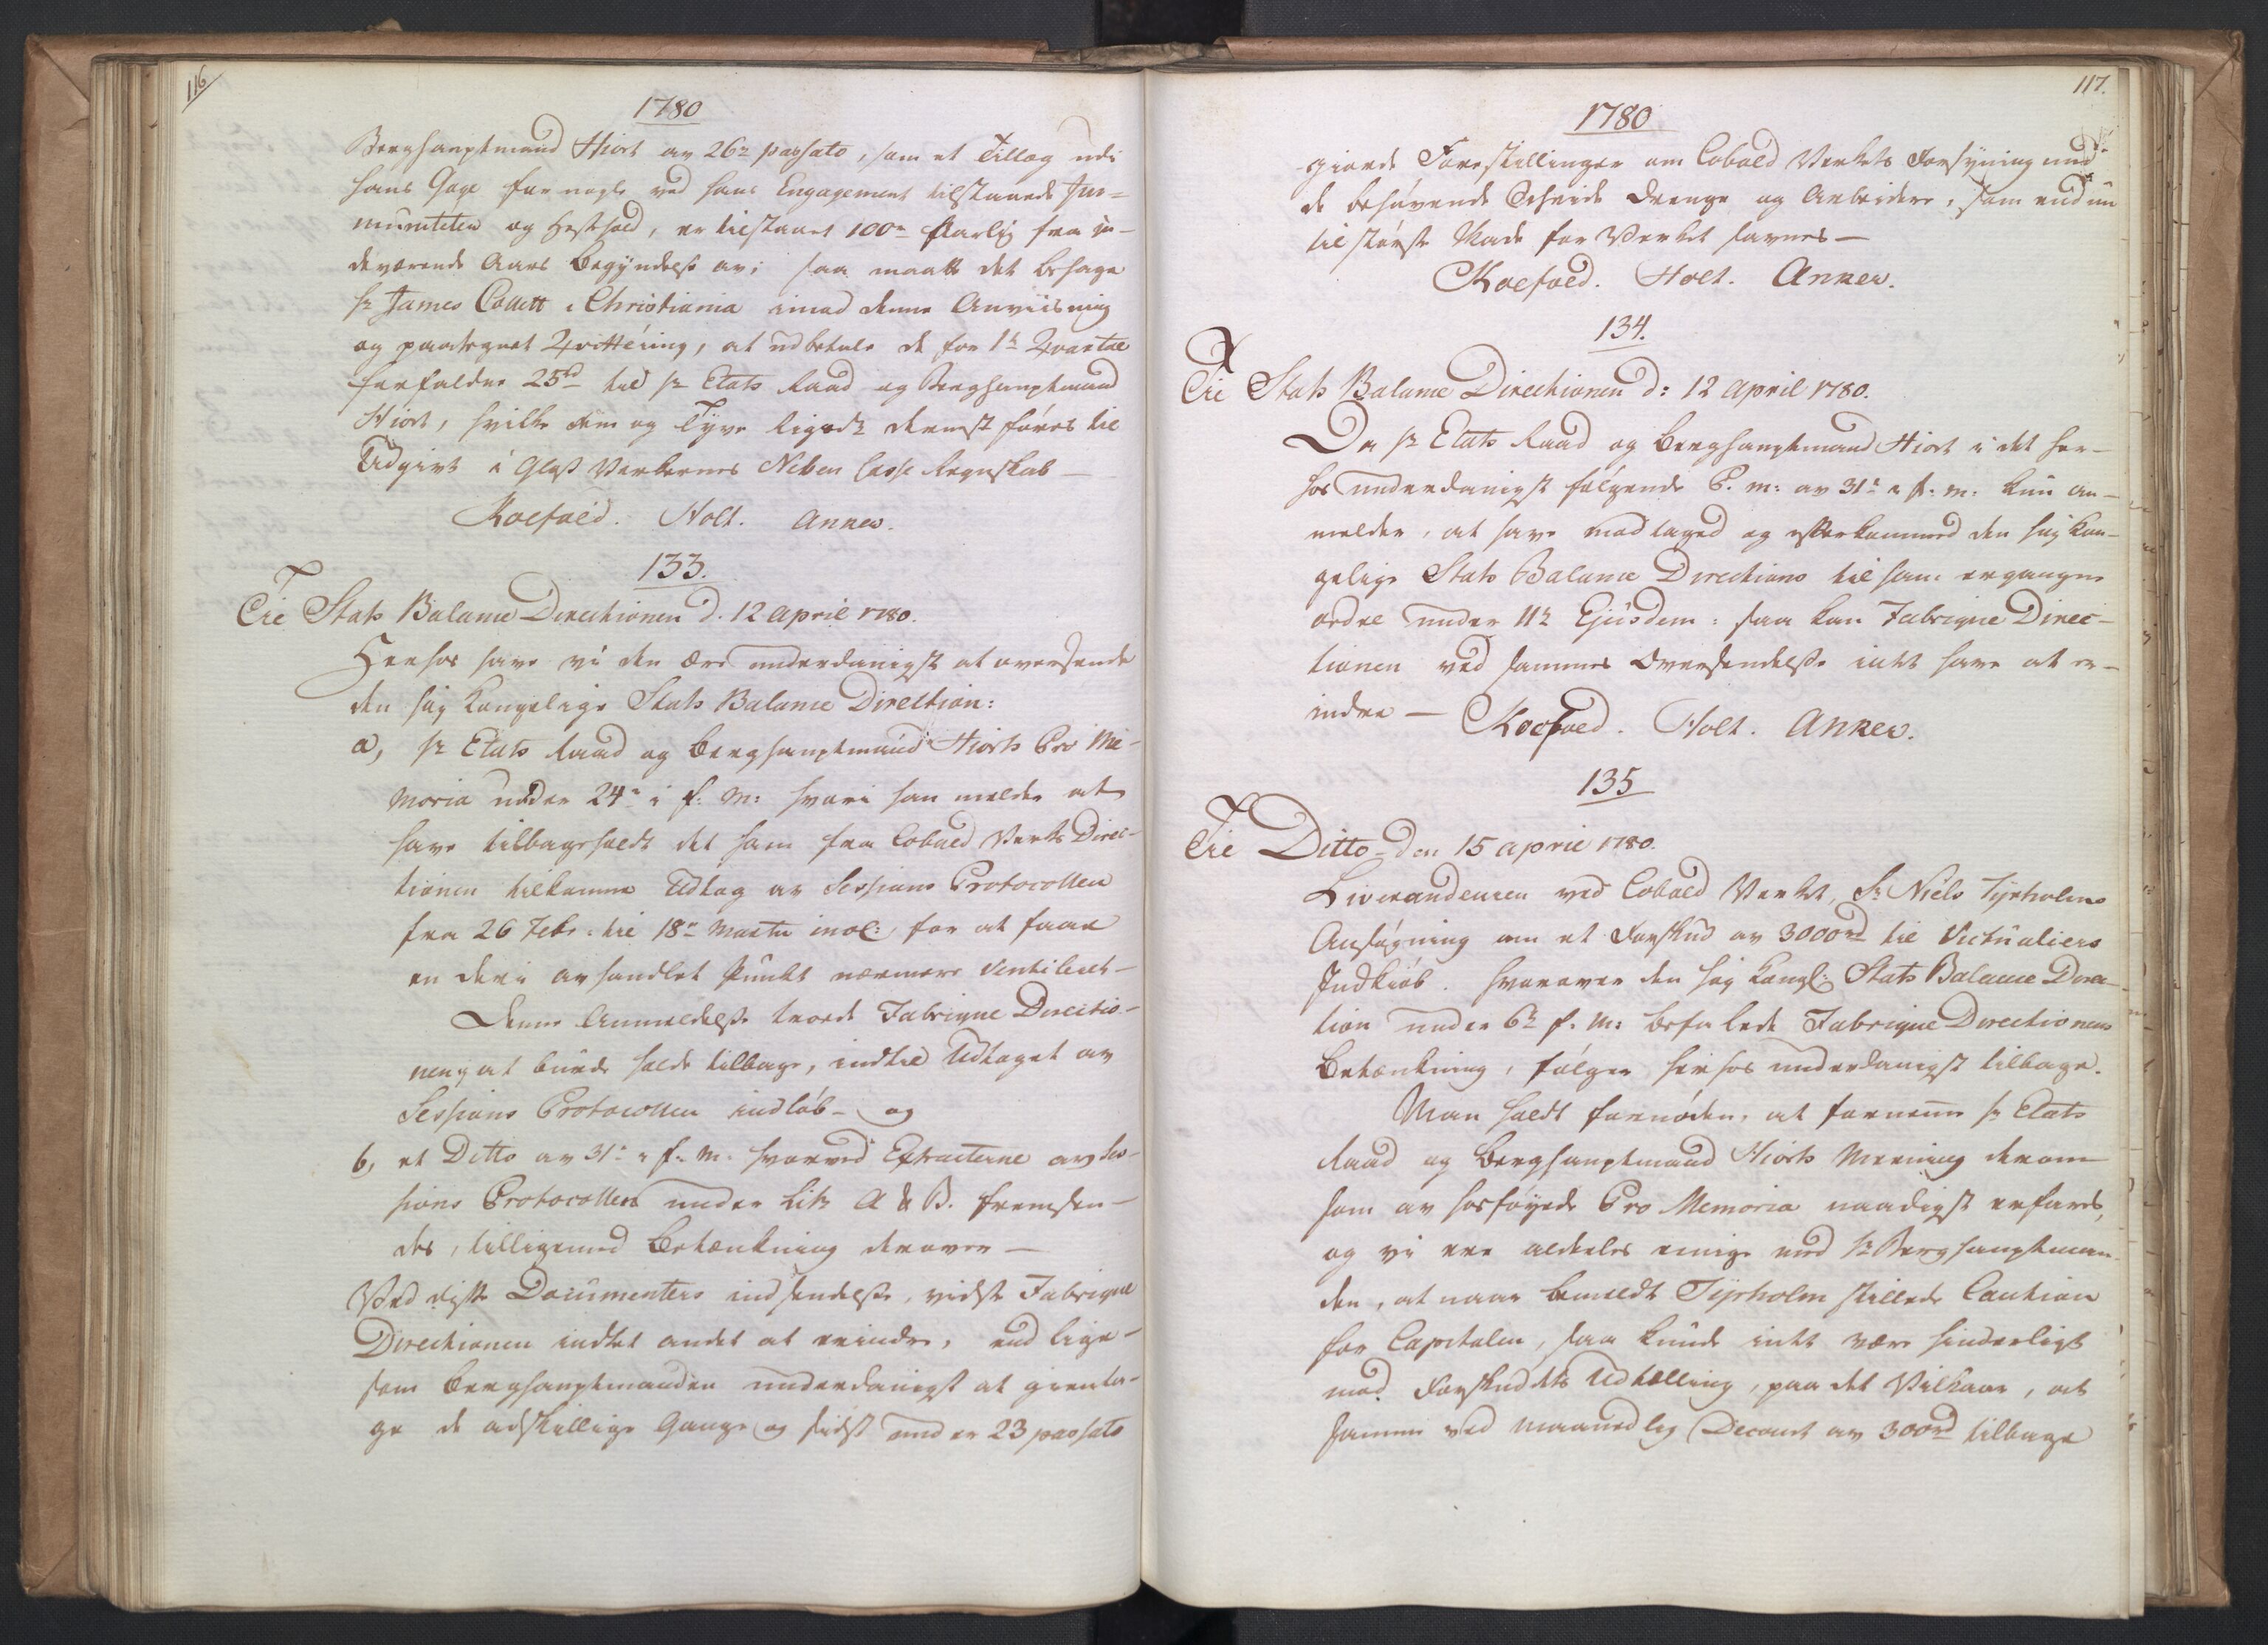 116
1780
Berghauptmand Hiort av 26de passato, som et Tillæg udi
hans Gage for nogle ved hans Engagement tilstaaede Im=
muniteter og Hestehold, er tilstaaet 100rd aarlig fra in-
deværende Aars Begyndelse av; saa maatte det behage
Hr James Collett i Christiania imod denne Anviisning
og paategnet Qvittering, at udbetale de for 1te Qvartal
forfaldne 25rd til Hr Etats Raad og Berghauptmand
Hiort, hvilke fem og Tyve Rigsdr dernæst føres til
Udgivt i Glas Verkernes Neben Casse Regnskab —
Koefoed. Holt. Anker.
133.
Til Stats Balance Directionen d. 12 April 1780.
Herhos have vi den Ære underdanigst at oversende
den høy Kongelige Stats Balance Direction:
a, Hr Etats Raad og Berghauptmand Hiorts Pro Me-
moria under 24de i f: M: hvori han melder at
have tilbageholdt det ham fra Cobold Verks Direc-
tionen tilkomne Udtog av Sessions Protocollen
fra 26 Febr: til 18de Martii incl: for at faae
en deri avhandlet Punkt nærmere Ventileret —
Denne Anmeldelse troede Fabrique Directio-
nen at burde holde tilbage, indtil Udtoget av
Sessions Protocollen indløb — og
b, et Ditto av 31te i f: M: hvorved Extracterne av Ses-
sions Protocollen under Litr A & B. fremsen-
des, tilligemed Betænkning derover —
Ved disse Documenters indsendelse, vidste Fabrique
Directionen indtet andet at erindre, end lige-
som Berghauptmanden underdanigst at gienta-
ge de adskillige Gange og sidst under 23 passato
117.
1780
giorde Forestillinger om Cobold Verkets Forsyning med
de behøvende Scheide Drenge og Arbeidere, som end nu
til største Skade for Verket savnes —
Koefoed. Holt. Anker.
134.
Til Stats Balance Directionen d: 12 April 1780.
Da Hr Etats Raad og Berghauptmand Hiort i det her-
hos underdanigst følgende P. M: av 31te i f: M: kun an-
melder, at have modtaged og efterkommed den høy Kon-
gelige Stats Balance Directions til ham ergangne
Ordre under 11te Ejusdem: saa kan Fabrique Direc-
tionen ved sammes Oversendelse intet have at er-
indre — Koefoed. Holt. Anker.
135
Til Ditto den 15 April 1780.
Liverandeuren ved Cobold Verket, Sr Niels Tyrholms
Ansøgning om et Forskud av 3000rd til Victualiers
Indkiøb. hvorover den høy Kongl: Stats Balance Direc-
tion under 6te f. M: befalede Fabrique Directionens
Betænkning, følger herhos underdanigst tilbage.
Man holdt fornøden, at fornemme Hr Etats
Raad og Berghauptmand Hiorts Meening derom
som av hosføyede Pro Memoria naadigst erfares,
og vi ere aldeles enige med Hr Berghauptman-
den, at naar bemeldte Tyrholm stillede Caution
for Capitalen, saa kunde intet være hinderligt
mod Forskuddets Udtælling, paa det Vilkaar, at
samme ved maanedlig Decourt av 300rd tilbage